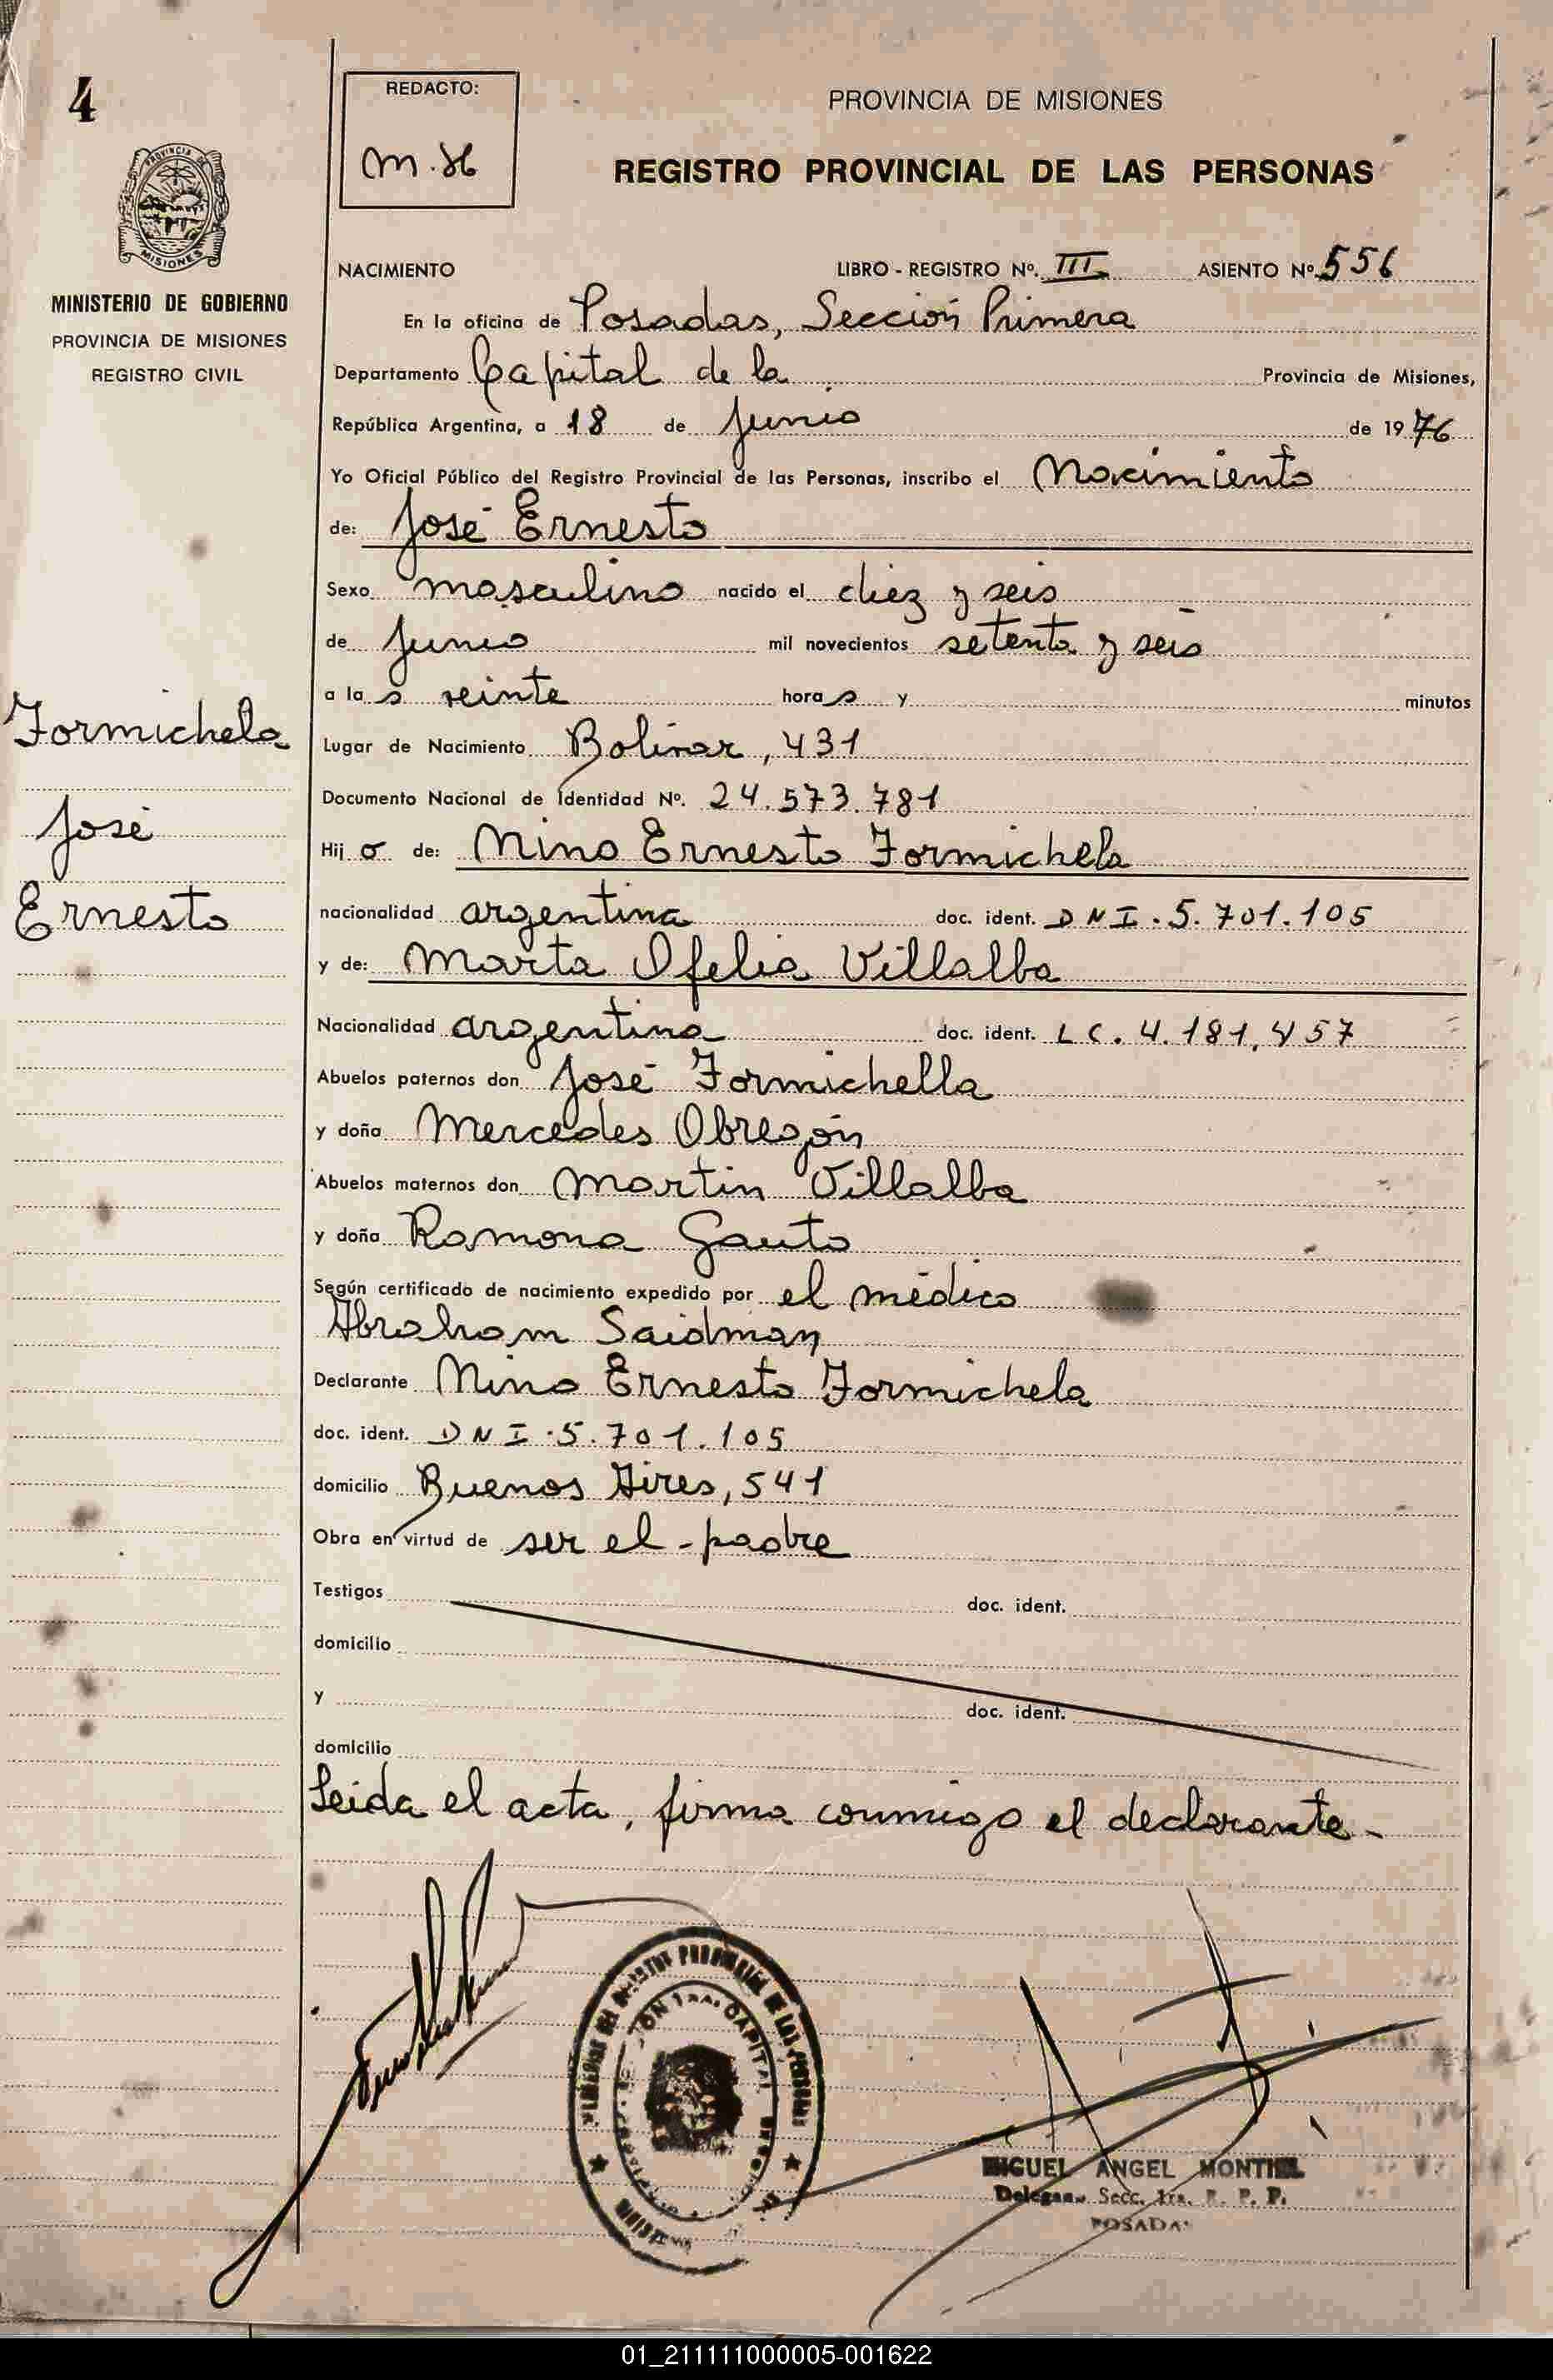 4
REDACTO:
PROVINCIA DE MISIONES
REGISTRO PROVINCIAL DE LAS PERSONAS
PROVINCIA DE
MISIONES
MINISTERIO DE GOBIERNO
PROVINCIA DE MISIONES
REGISTRO CIVIL
NACIMIENTO LIBRO - REGISTRO Nº. III ASIENTO Nº. 556
En la oficina de Posadas, Sección Primera
Departamento Capital de la Provincia de Misiones,
República Argentina, a 18 de Junio de 1976
Yo Oficial Público del Registro Provincial de las Personas, inscribo el Nacimiento
de: José Ernesto
Sexo masculino nacido el diez y seis
de Junio mil novecientos setenta y seis
a las veinte horas y minutos
Formichela
José
Ernesto
Lugar de Nacimiento Bolivar, 431
Documento Nacional de Identidad Nº. 24.573.781
Hijo de: Nino Ernesto Formichela
nacionalidad argentina doc. ident. DNI. 5.701.105
y de: Marta Ofelia Villalba
Nacionalidad argentina doc. ident. LC. 4.181.457
Abuelos paternos don José Formichella
y doña Mercedes Obregón
Abuelos maternos don Martin Villalba
y doña Ramona Gauto
Según certificado de nacimiento expedido por el médico
Abraham Saidman
Declarante Nino Ernesto Formichela
doc. ident. DNI. 5.701.105
domicilio Buenos Aires, 541
Obra en virtud de ser el padre
Testigos doc. ident.
domicilio
y doc. ident.
domicilio
Leida el acta, firma conmigo el declarante-
MIGUEL ANGEL MONTIEL
Secc. 1ra. R. P. P.
POSADAS
01_211111000005-001622